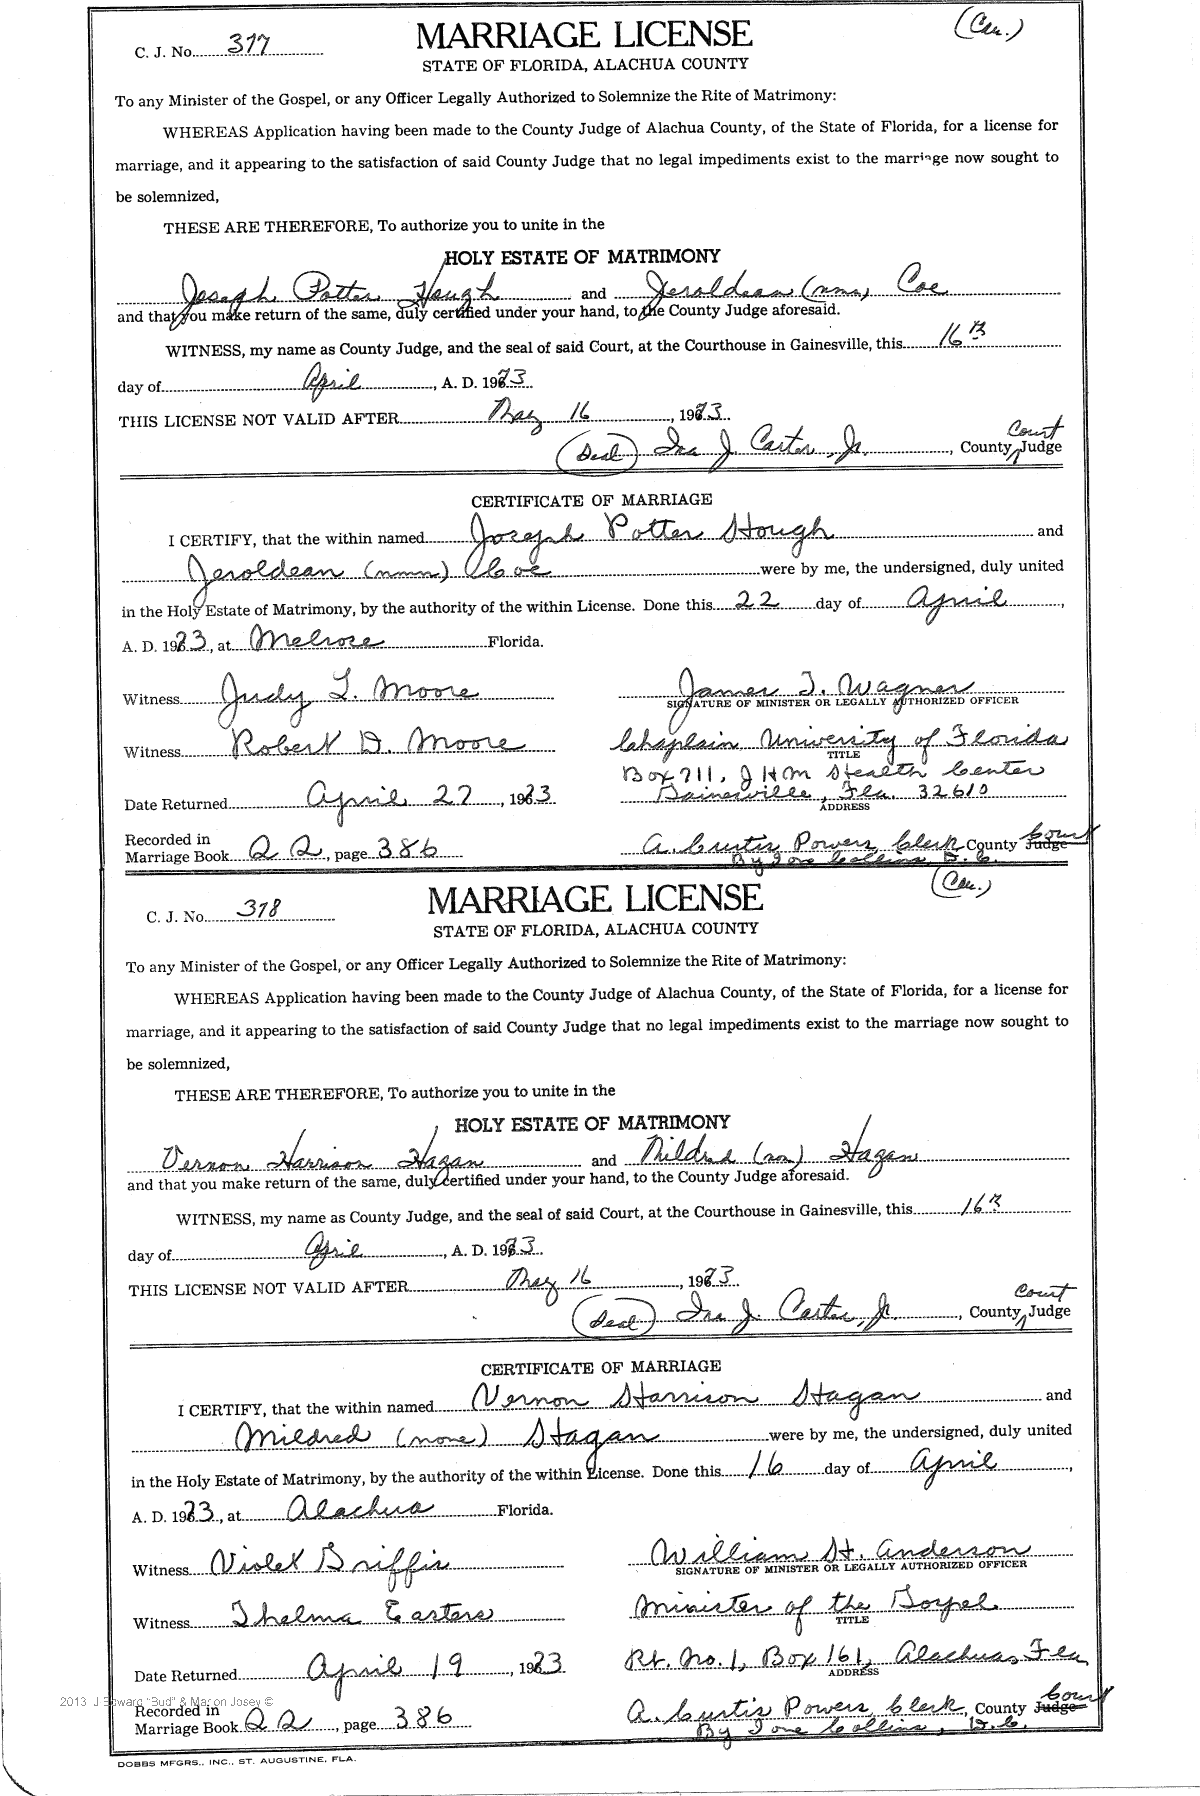 (Cau.)
C. J. No. 377 MARRIAGE LICENSE
STATE OF FLORIDA, ALACHUA COUNTY
To any Minister of the Gospel, or any Officer Legally Authorized to Solemnize the Rite of Matrimony:
WHEREAS Application having been made to the County Judge of Alachua County, of the State of Florida, for a license for
marriage, and it appearing to the satisfaction of said County Judge that no legal impediments exist to the marriage now sought to
be solemnized,
THESE ARE THEREFORE, To authorize you to unite in the
HOLY ESTATE OF MATRIMONY
Joseph Potter Hough and Jeroldean (nmn) Coe
and that you make return of the same, duly certified under your hand, to the County Judge aforesaid.
WITNESS, my name as County Judge, and the seal of said Court, at the Courthouse in Gainesville, this 16th
day of April, A. D. 1973.
THIS LICENSE NOT VALID AFTER May 16, 1973.
(Seal) Ira J. Carter, Jr., County Court Judge
CERTIFICATE OF MARRIAGE
I CERTIFY, that the within named Joseph Potter Hough and
Jeroldean (nmn) Coe were by me, the undersigned, duly united
in the Holy Estate of Matrimony, by the authority of the within License. Done this 22 day of April,
A. D. 1973, at Melrose Florida.
Witness Judy L. Moore James T. Wagner
SIGNATURE OF MINISTER OR LEGALLY AUTHORIZED OFFICER
Witness Robert D. Moore Chaplain University of Florida
TITLE
Box 711, J H M Health Center
Date Returned April 27, 1973 Gainesville, Fla. 32610
ADDRESS
Recorded in
Marriage Book 22, page 386 A. Curtis Powers, Clerk County Judge Court
By Ione Collins, D.C.
(Cau.)
C. J. No. 378 MARRIAGE LICENSE
STATE OF FLORIDA, ALACHUA COUNTY
To any Minister of the Gospel, or any Officer Legally Authorized to Solemnize the Rite of Matrimony:
WHEREAS Application having been made to the County Judge of Alachua County, of the State of Florida, for a license for
marriage, and it appearing to the satisfaction of said County Judge that no legal impediments exist to the marriage now sought to
be solemnized,
THESE ARE THEREFORE, To authorize you to unite in the
HOLY ESTATE OF MATRIMONY
Vernon Harrison Hagan and Mildred (non) Hagan
and that you make return of the same, duly certified under your hand, to the County Judge aforesaid.
WITNESS, my name as County Judge, and the seal of said Court, at the Courthouse in Gainesville, this 16th
day of April, A. D. 1973.
THIS LICENSE NOT VALID AFTER May 16, 1973.
(Seal) Ira J. Carter, Jr., County Court Judge
CERTIFICATE OF MARRIAGE
I CERTIFY, that the within named Vernon Harrison Hagan and
Mildred (none) Hagan were by me, the undersigned, duly united
in the Holy Estate of Matrimony, by the authority of the within License. Done this 16 day of April,
A. D. 1973, at Alachua Florida.
Witness Violet Griffis William H. Anderson
SIGNATURE OF MINISTER OR LEGALLY AUTHORIZED OFFICER
Witness Thelma Easters Minister of the Gospel
TITLE
Date Returned April 19, 1973 Rt. No. 1, Box 161, Alachua, Fla
ADDRESS
2013 J Edward "Bud" & Marion Josey ©
Recorded in
Marriage Book 22, page 386 A. Curtis Powers, Clerk, County Judge Court
By Ione Collins, D.C.
DOBBS MFGRS., INC., ST. AUGUSTINE, FLA.